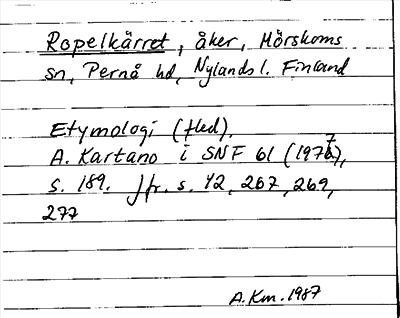 Ropelkärret, åker, Mörskoms
sn, Pernå hd, Nylands l. Finland
Etymologi (fled).
A. Kartano i SNF 61 (1977),
s. 189. Jfr. s. 42, 267, 269,
277
A.Km. 1987